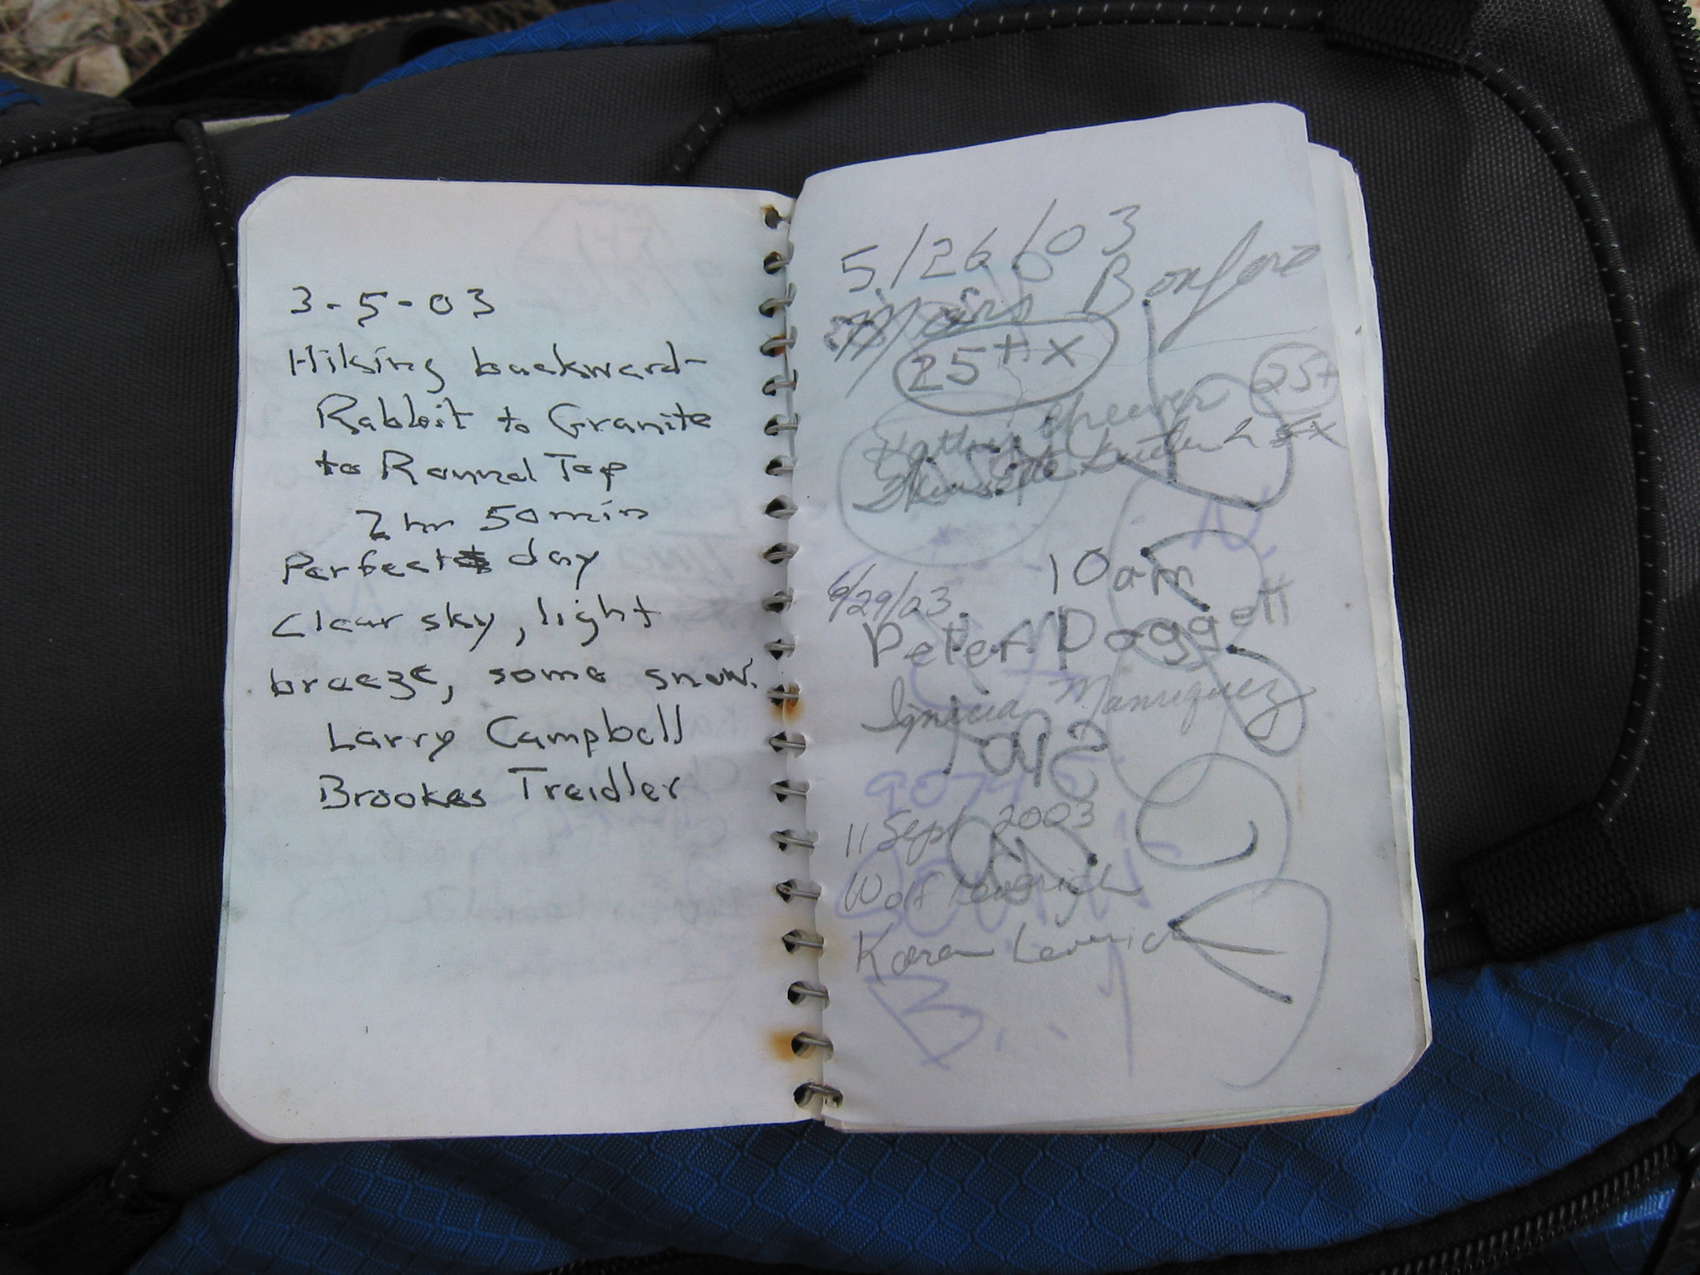 3-5-03
Hiking backward-
Rabbit to Granite
to Round Top
2 hr 50 min
Perfect day
Clear sky, light
breeze, some snow.
Larry Campbell
Brookes Treidler
5/26/03
25+x
25+
25x
10am
6/29/03
Peter Doggett
Ignacia Manriquez
11 Sept 2003
Wolf Leverich
Karen Leverich